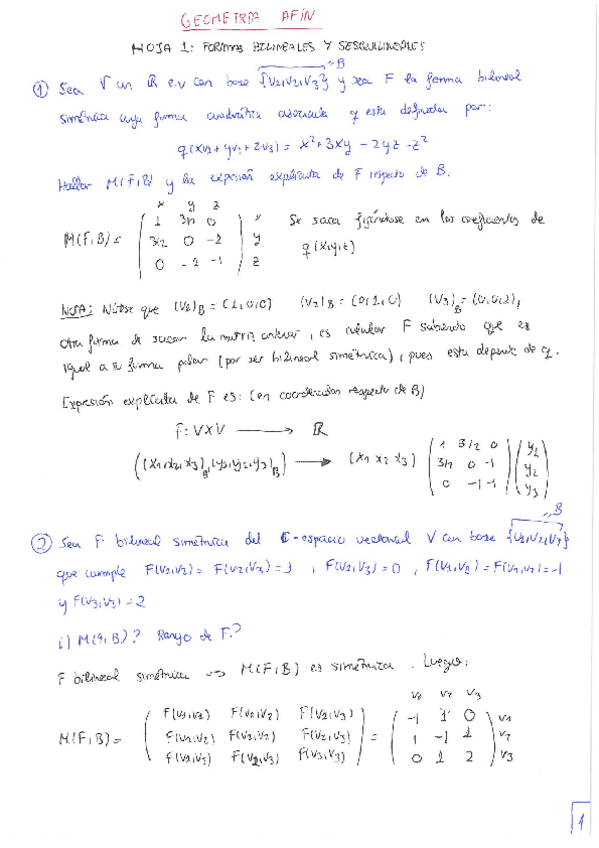 GEOMETRÍA AFÍN
HOJA 1: FORMAS BILINEALES Y SESQUILINEALES
B
① Sea V un R e.v con base {V1,V2,V3} y sea F la forma bilineal
simétrica cuya forma cuadrática asociada q esta definida por:
q(xv1+yv2+zv3) = x²+3xy-2yz-z²
Hallar M(F,B) y la expresión explícita de F respecto de B.
x y z
M(F,B) = ( 1 3/2 0 ) x
( 3/2 0 -2 ) y
( 0 -2 -1 ) z
Se saca fijándose en los coeficientes de
q(x,y,z)
NOTA: Nótese que (V1)B = (1,0,0) (V2)B = (0,1,0) (V3)B = (0,0,1),
otra forma de sacar la matriz anterior, es calcular F sabiendo que es
igual a su forma polar (por ser bilineal simétrica), pues esta depende de q.
Expresión explícita de F es: (en coordenadas respecto de B)
F: V×V → R
((x1,x2,x3)B,(y1,y2,y3)B) → (x1 x2 x3) ( 1 3/2 0 ) ( y1 )
( 3/2 0 -1 ) ( y2 )
( 0 -1 -1 ) ( y3 )
B
② Sea F bilineal simétrica del C-espacio vectorial V con base {V1,V2,V3}
que cumple F(V1,V2) = F(V2,V3) = 1 , F(V1,V3) = 0 , F(V1,V1) = F(V2,V2) = -1
y F(V3,V3) = 2
i) M(F,B)? Rango de F?
F bilineal simétrica → M(F,B) es simétrica. Luego:
V1 V2 V3
M(F,B) = ( F(V1,V1) F(V1,V2) F(V1,V3) ) = ( -1 1 0 ) V1
( F(V1,V2) F(V2,V2) F(V2,V3) ) ( 1 -1 1 ) V2
( F(V1,V3) F(V2,V3) F(V3,V3) ) ( 0 1 2 ) V3
1